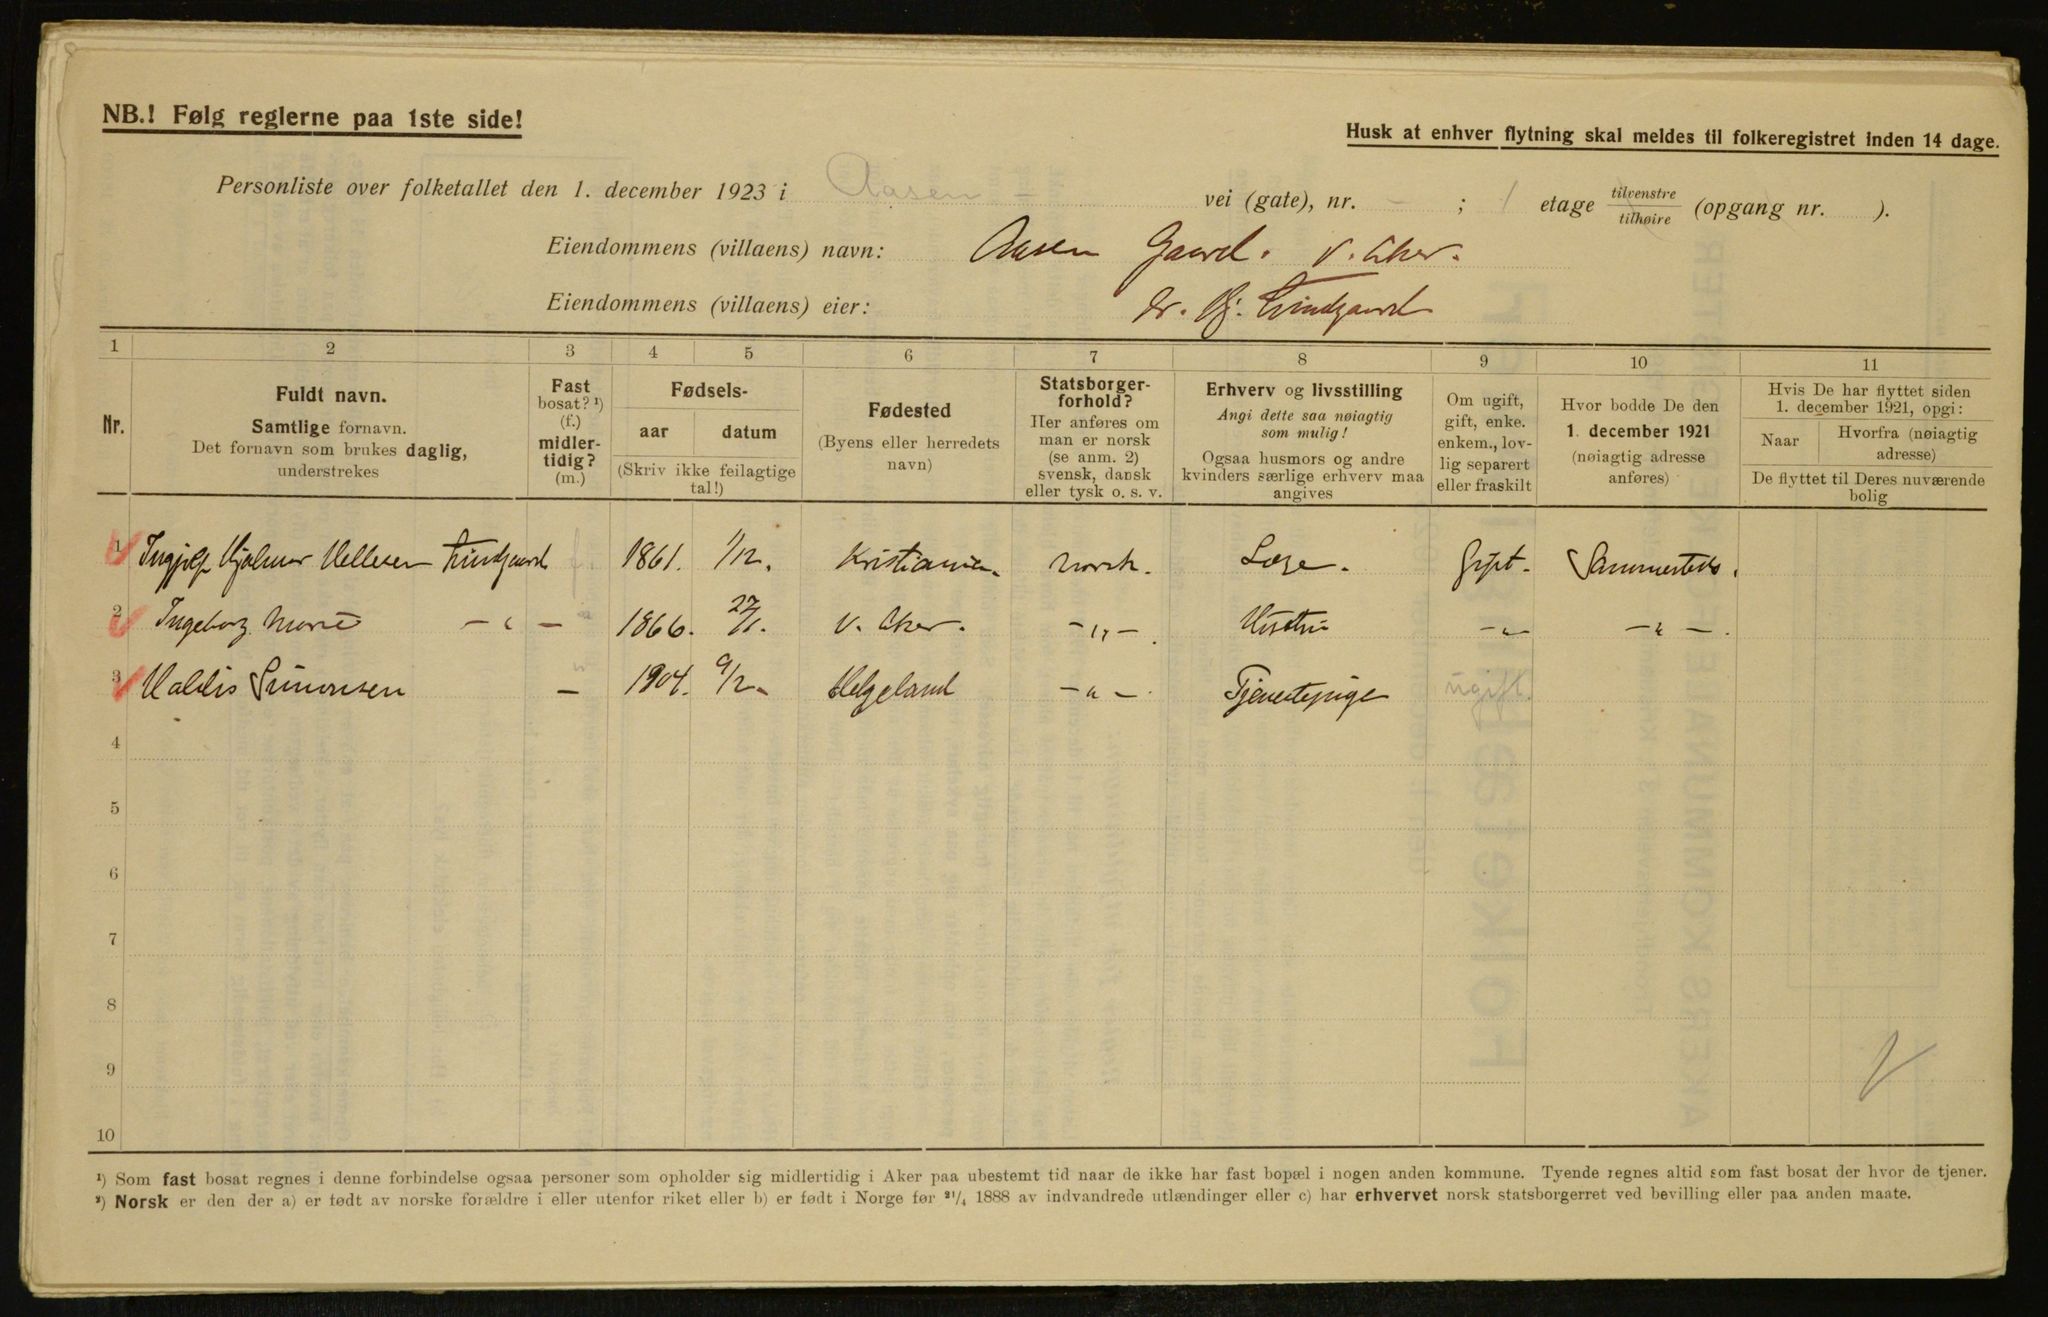 NB.! Følg reglerne paa 1ste side!
Husk at enhver flytning skal meldes til folkeregistret inden 14 dage.
Personliste over folketallet den 1. december 1923 i Aasen vei (gate), nr. - ; 1 etage tilvenstre / tilhøire (opgang nr. ).
Eiendommens (villaens) navn: Aasen Gaard. V. Aker.
Eiendommens (villaens) eier: Dr. Hj.
1 2 3 4 5 6 7 8 9 10 11
Nr.
Fuldt navn.
Samtlige fornavn.
Det fornavn som brukes daglig,
understrekes
Fast
bosat? ¹)
(f.)
midler-
tidig?
(m.)
Fødsels-
aar datum
(Skriv ikke feilagtige
tal!)
Fødested
(Byens eller herredets
navn)
Statsborger-
forhold?
Her anføres om
man er norsk
(se anm. 2)
svensk, dansk
eller tysk o. s. v.
Erhverv og livsstilling
Angi dette saa nøiagtig
som mulig!
Ogsaa husmors og andre
kvinders særlige erhverv maa
angives
Om ugift,
gift, enke.
enkem., lov-
lig separert
eller fraskilt
Hvor bodde De den
1. december 1921
(nøiagtig adresse
anføres)
Hvis De har flyttet siden
1. december 1921, opgi:
Naar
Hvorfra (nøiagtig
adresse)
De flyttet til Deres nuværende
bolig
1 Hjalmar 1861. 1/12. Kristiania. norsk. Læge. Gift. Sammesteds.
2 Ingeborg Marie - " - 1866. 27/1. V. Aker. - " - Hustru - " - - " - .
3 Valdis Simonsen - 1904. 9/2. Helgeland - " - . Tjenestepige ugift.
4
5
6
7
8
9
10
¹) Som fast bosat regnes i denne forbindelse ogsaa personer som opholder sig midlertidig i Aker paa ubestemt tid naar de ikke har fast bopæl i nogen anden kommune. Tyende regnes altid som fast bosat der hvor de tjener.
²) Norsk er den der a) er født av norske forældre i eller utenfor riket eller b) er født i Norge før ²¹/₄ 1888 av indvandrede utlændinger eller c) har erhvervet norsk statsborgerret ved bevilling eller paa anden maate.